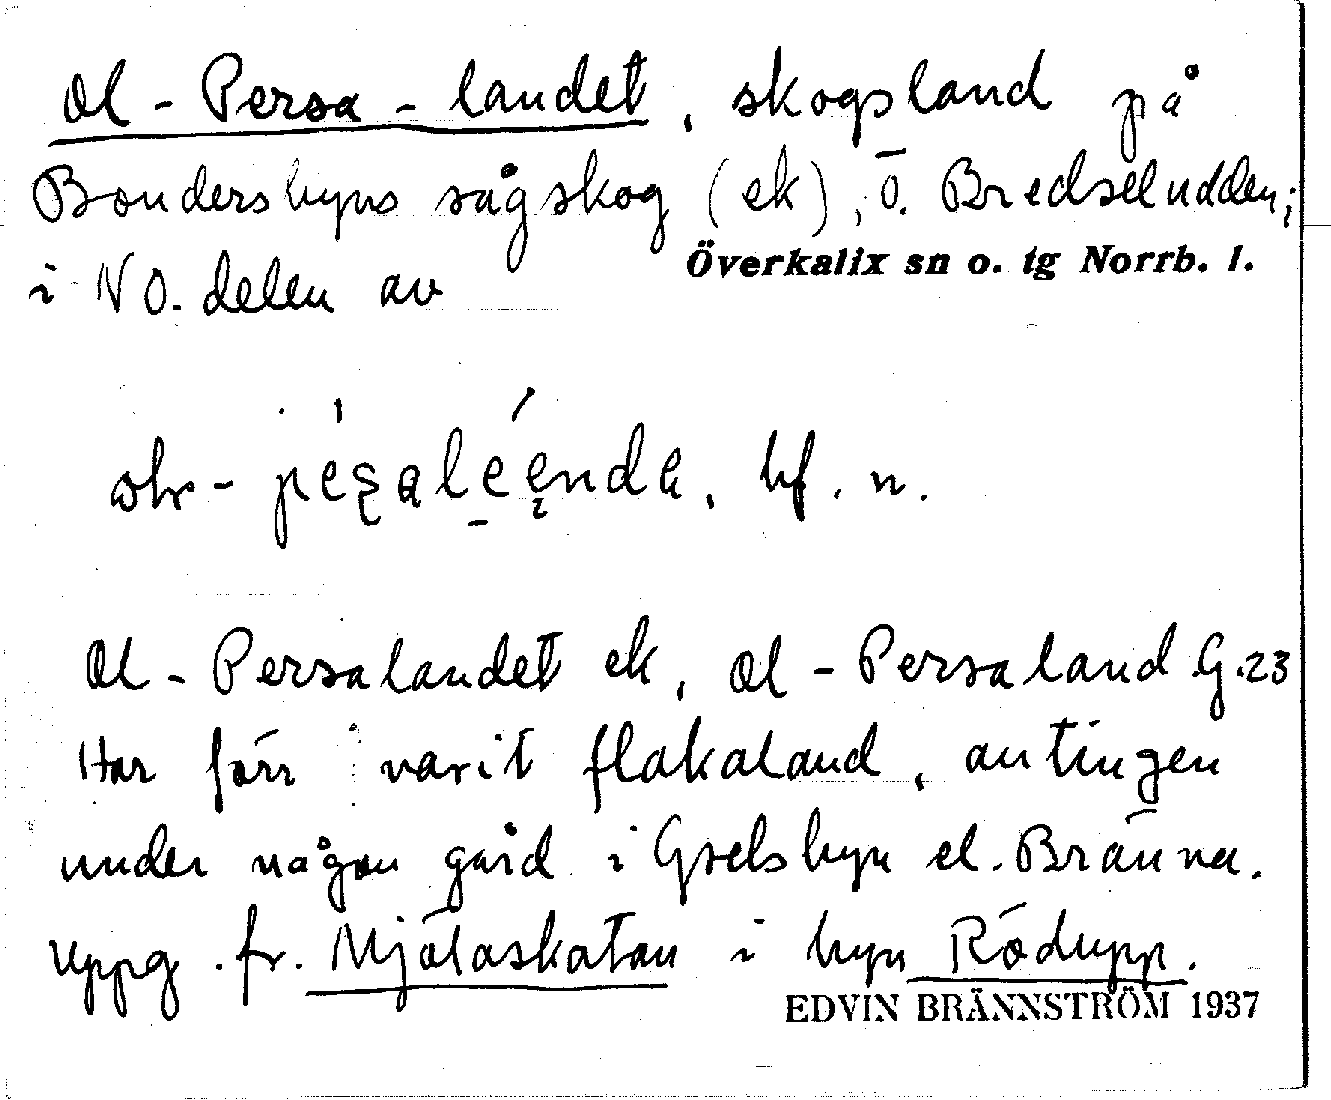 Ol-Persa-landet, skogsland på
Bondersbyns sågskog (ek), ö. Bredseludden;
i NO. delen av Överkalix sn o. tg Norrb. l.
bf. n.
Ol-Persalandet ek, Ol-Persaland G.23
Har förr varit flakaland, antingen
under någon gård i Gyselsbyn el. Bränna.
Uppg. fr. Mjölaskatan i byn Rödupp.
EDVIN BRÄNNSTRÖM 1937